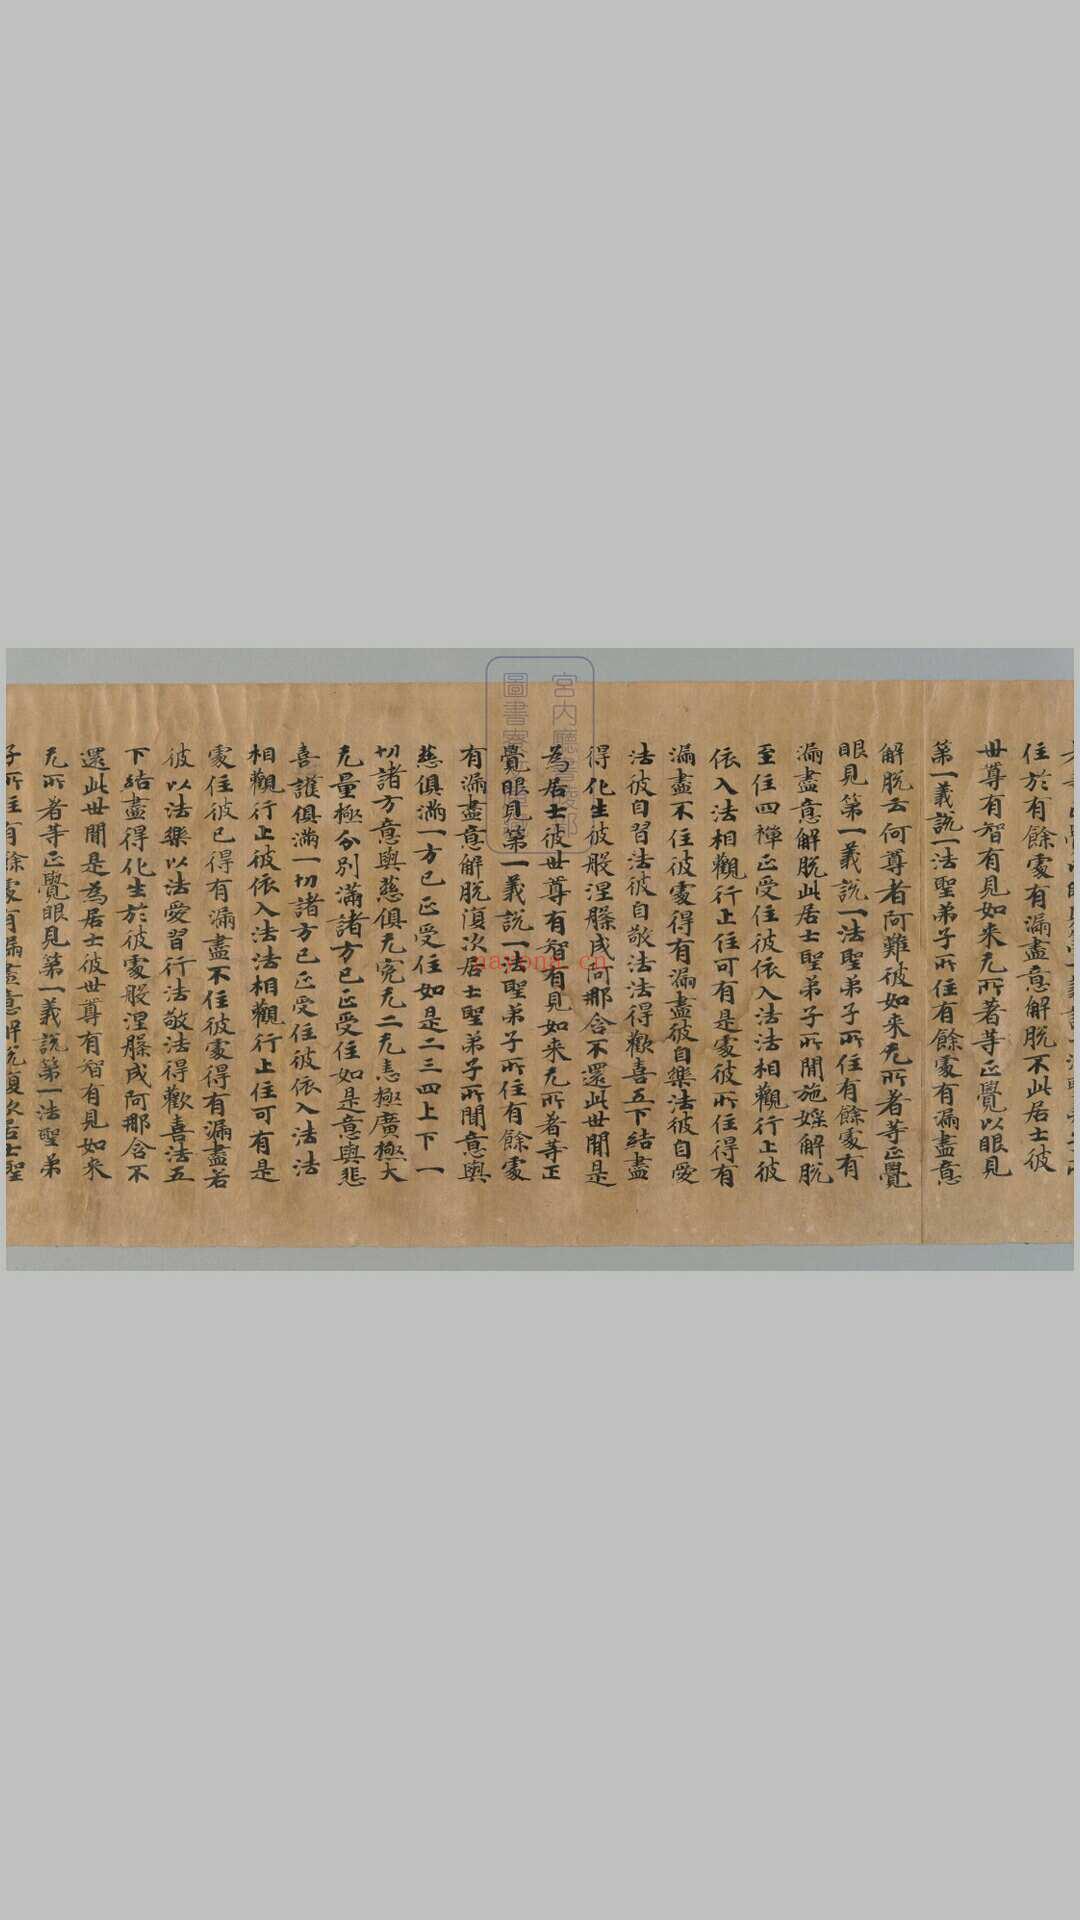 住於有餘處有漏盡意解脫不此居士彼
世尊有智有見如来无所著等正覺以眼見
第一義說一法聖弟子所住有餘處有漏盡意
解脫云何尊者阿難彼如来无所著等正覺
眼見第一義說一法聖弟子所住有餘處有
漏盡意解脫此居士聖弟子所聞施婬解脫
至住四禪正受住彼依入法法相觀行止彼
依入法相觀行止住可有是處彼所住得有
漏盡不住彼處得有漏盡彼自樂法彼自愛
法彼自習法彼自敬法法得歡喜五下結盡
得化生彼般涅槃成阿那含不還此世間是
為居士彼世尊有智有見如来无所著等正
覺眼見第一義說一法聖弟子所住有餘處
有漏盡意解脫復次居士聖弟子所聞意與
慈俱滿一方已正受住如是二三四上下一
切諸方意與慈俱无究无二无恚極廣極大
无量極分別滿諸方已正受住如是意與悲
喜護俱滿一切諸方已正受住彼依入法法
相觀行止彼依入法法相觀行止住可有是
處住彼已得有漏盡不住彼處得有漏盡若
彼以法樂以法愛習行法敬法得歡喜法五
下結盡得化生於彼處般涅槃成阿那含不
還此世間是為居士彼世尊有智有見如来
无所著等正覺眼見第一義說第一法聖弟
子所住有餘處有漏盡意解脫復次居士聖
宮内廳書陵部
圖書寮
nayona.cn